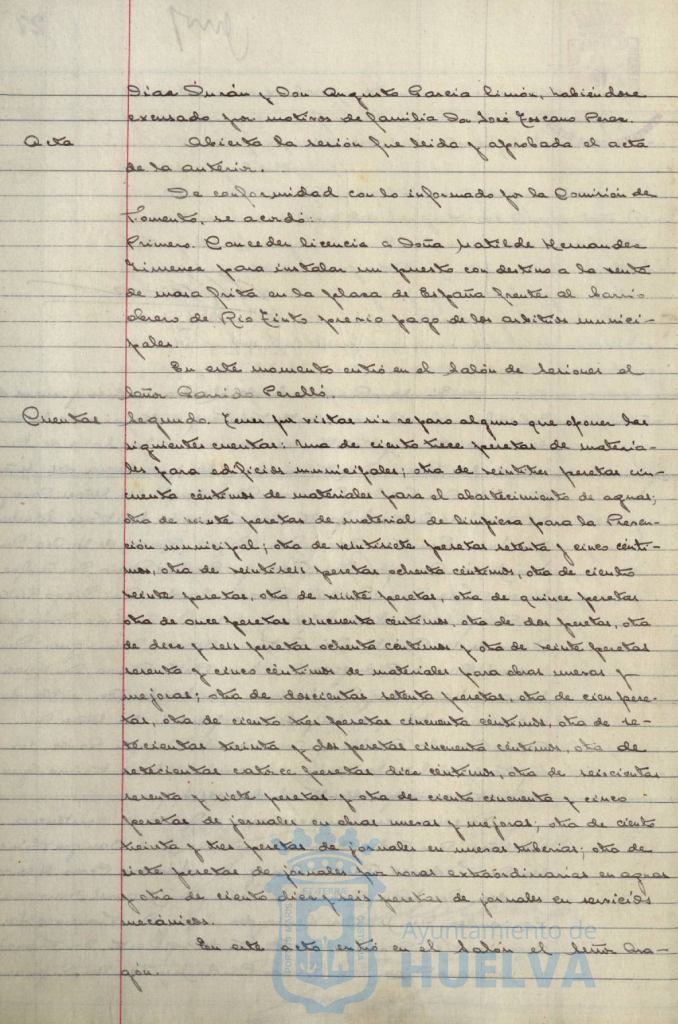 Díaz Durán y Don Augusto García Limón, habiéndose
excusado por motivos de familia Don José Toscano Perez.
Acta
Abierta la sesión fue leida y aprobada el acta
de la anterior.
De conformidad con lo informado por la Comisión de
Fomento, se acordó:
Primero. Conceder licencia a Doña Matilde Hernandez
Jimenez para instalar un puesto con destino a la venta
de masa frita en la plaza de España frente al barrio
obrero de Rio Tinto previo pago de los arbitrios munici-
pales.
En este momento entró en el Salón de Sesiones el
Señor Garrido Perelló.
Cuentas
Segundo. Tener por vistas sin reparo alguno que oponer las
siguientes cuentas: Una de ciento trece pesetas de materia-
les para edificios municipales; otra de veintitres pesetas cin-
cuenta céntimos de materiales para el abastecimiento de aguas;
otra de veinte pesetas de material de limpieza para la Preven-
ción municipal; otra de veintisiete pesetas setenta y cinco cénti-
mos, otra de veintiseis pesetas ochenta céntimos, otra de ciento
veinte pesetas, otra de veinte pesetas, otra de quince pesetas
otra de once pesetas cincuenta céntimos, otra de dos pesetas, otra
de diez y seis pesetas ochenta céntimos y otra de veinte pesetas
sesenta y cinco céntimos de materiales para obras nuevas y
mejoras; otra de doscientas setenta pesetas, otra de cien pese-
tas, otra de ciento tres pesetas cincuenta céntimos, otra de se-
tecientas treinta y dos pesetas cincuenta céntimos, otra de
setecientas catorce pesetas diez céntimos, otra de seiscientas
sesenta y siete pesetas y otra de ciento cincuenta y cinco
pesetas de jornales en obras nuevas y mejoras; otra de ciento
treinta y tres pesetas de jornales en nuevas tuberias; otra de
siete pesetas de jornales por horas extraordinarias en aguas
y otra de ciento diez y seis pesetas de jornales en servicios
mecánicos.
En este acto entró en el Salón el Señor Ara-
gón.
Ayuntamiento de
HUELVA